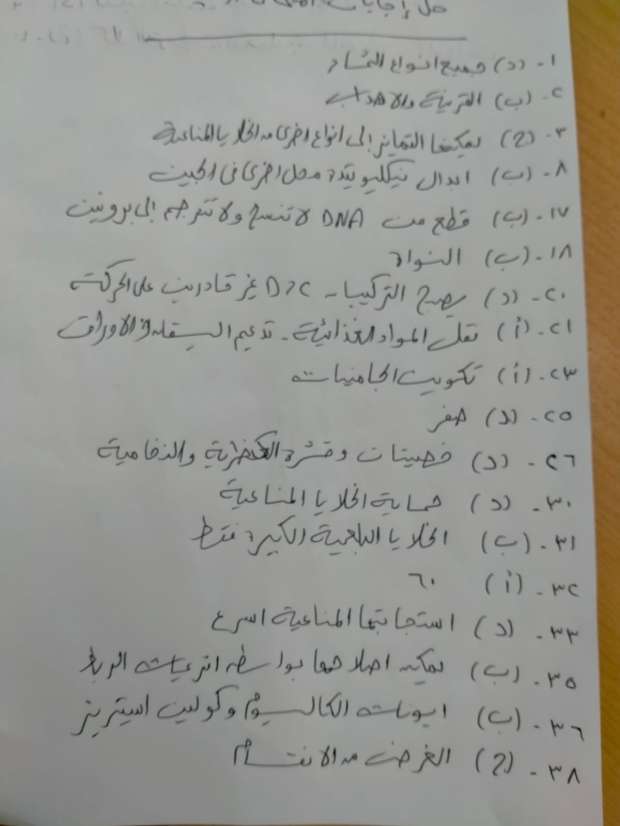 حل إجابات
١- (د) جميع انواع الثمار
٢- (ب) القرنية والاهداب
٣- (ج) يمكنها التمايز إلى أنواع اخرى من الخلايا المناعية
٨- (ب) ابدال نيكليوتيدة محل اخرى فى الجين
١٧- (ب) قطع من DNA لا تنسخ ولا تترجم إلى بروتين
١٨- (ب) النواة
٢٠- (د) يصبح التركيبان D،C غير قادرين على الحركة
٢١- (أ) نقل المواد الغذائية - تدعيم الساق والاوراق
٢٣- (أ) تكوين الجاميتات
٢٥- (د) صفر
٢٦- (د) خصيتان وقشرة الكظرية والنخامية
٣٠- (د) حماية الخلايا المناعية
٣١- (ب) الخلايا البلعمية الكبيرة فقط
٣٢- (أ) ٦٠
٣٣- (د) استجابتها المناعية اسرع
٣٥- (ب) يمكن اصلاحها بواسطة انزيمات الربط
٣٦- (ب) ايونات الكالسيوم وكولين استيريز
٣٨- (ج) الغرض من الانقسام